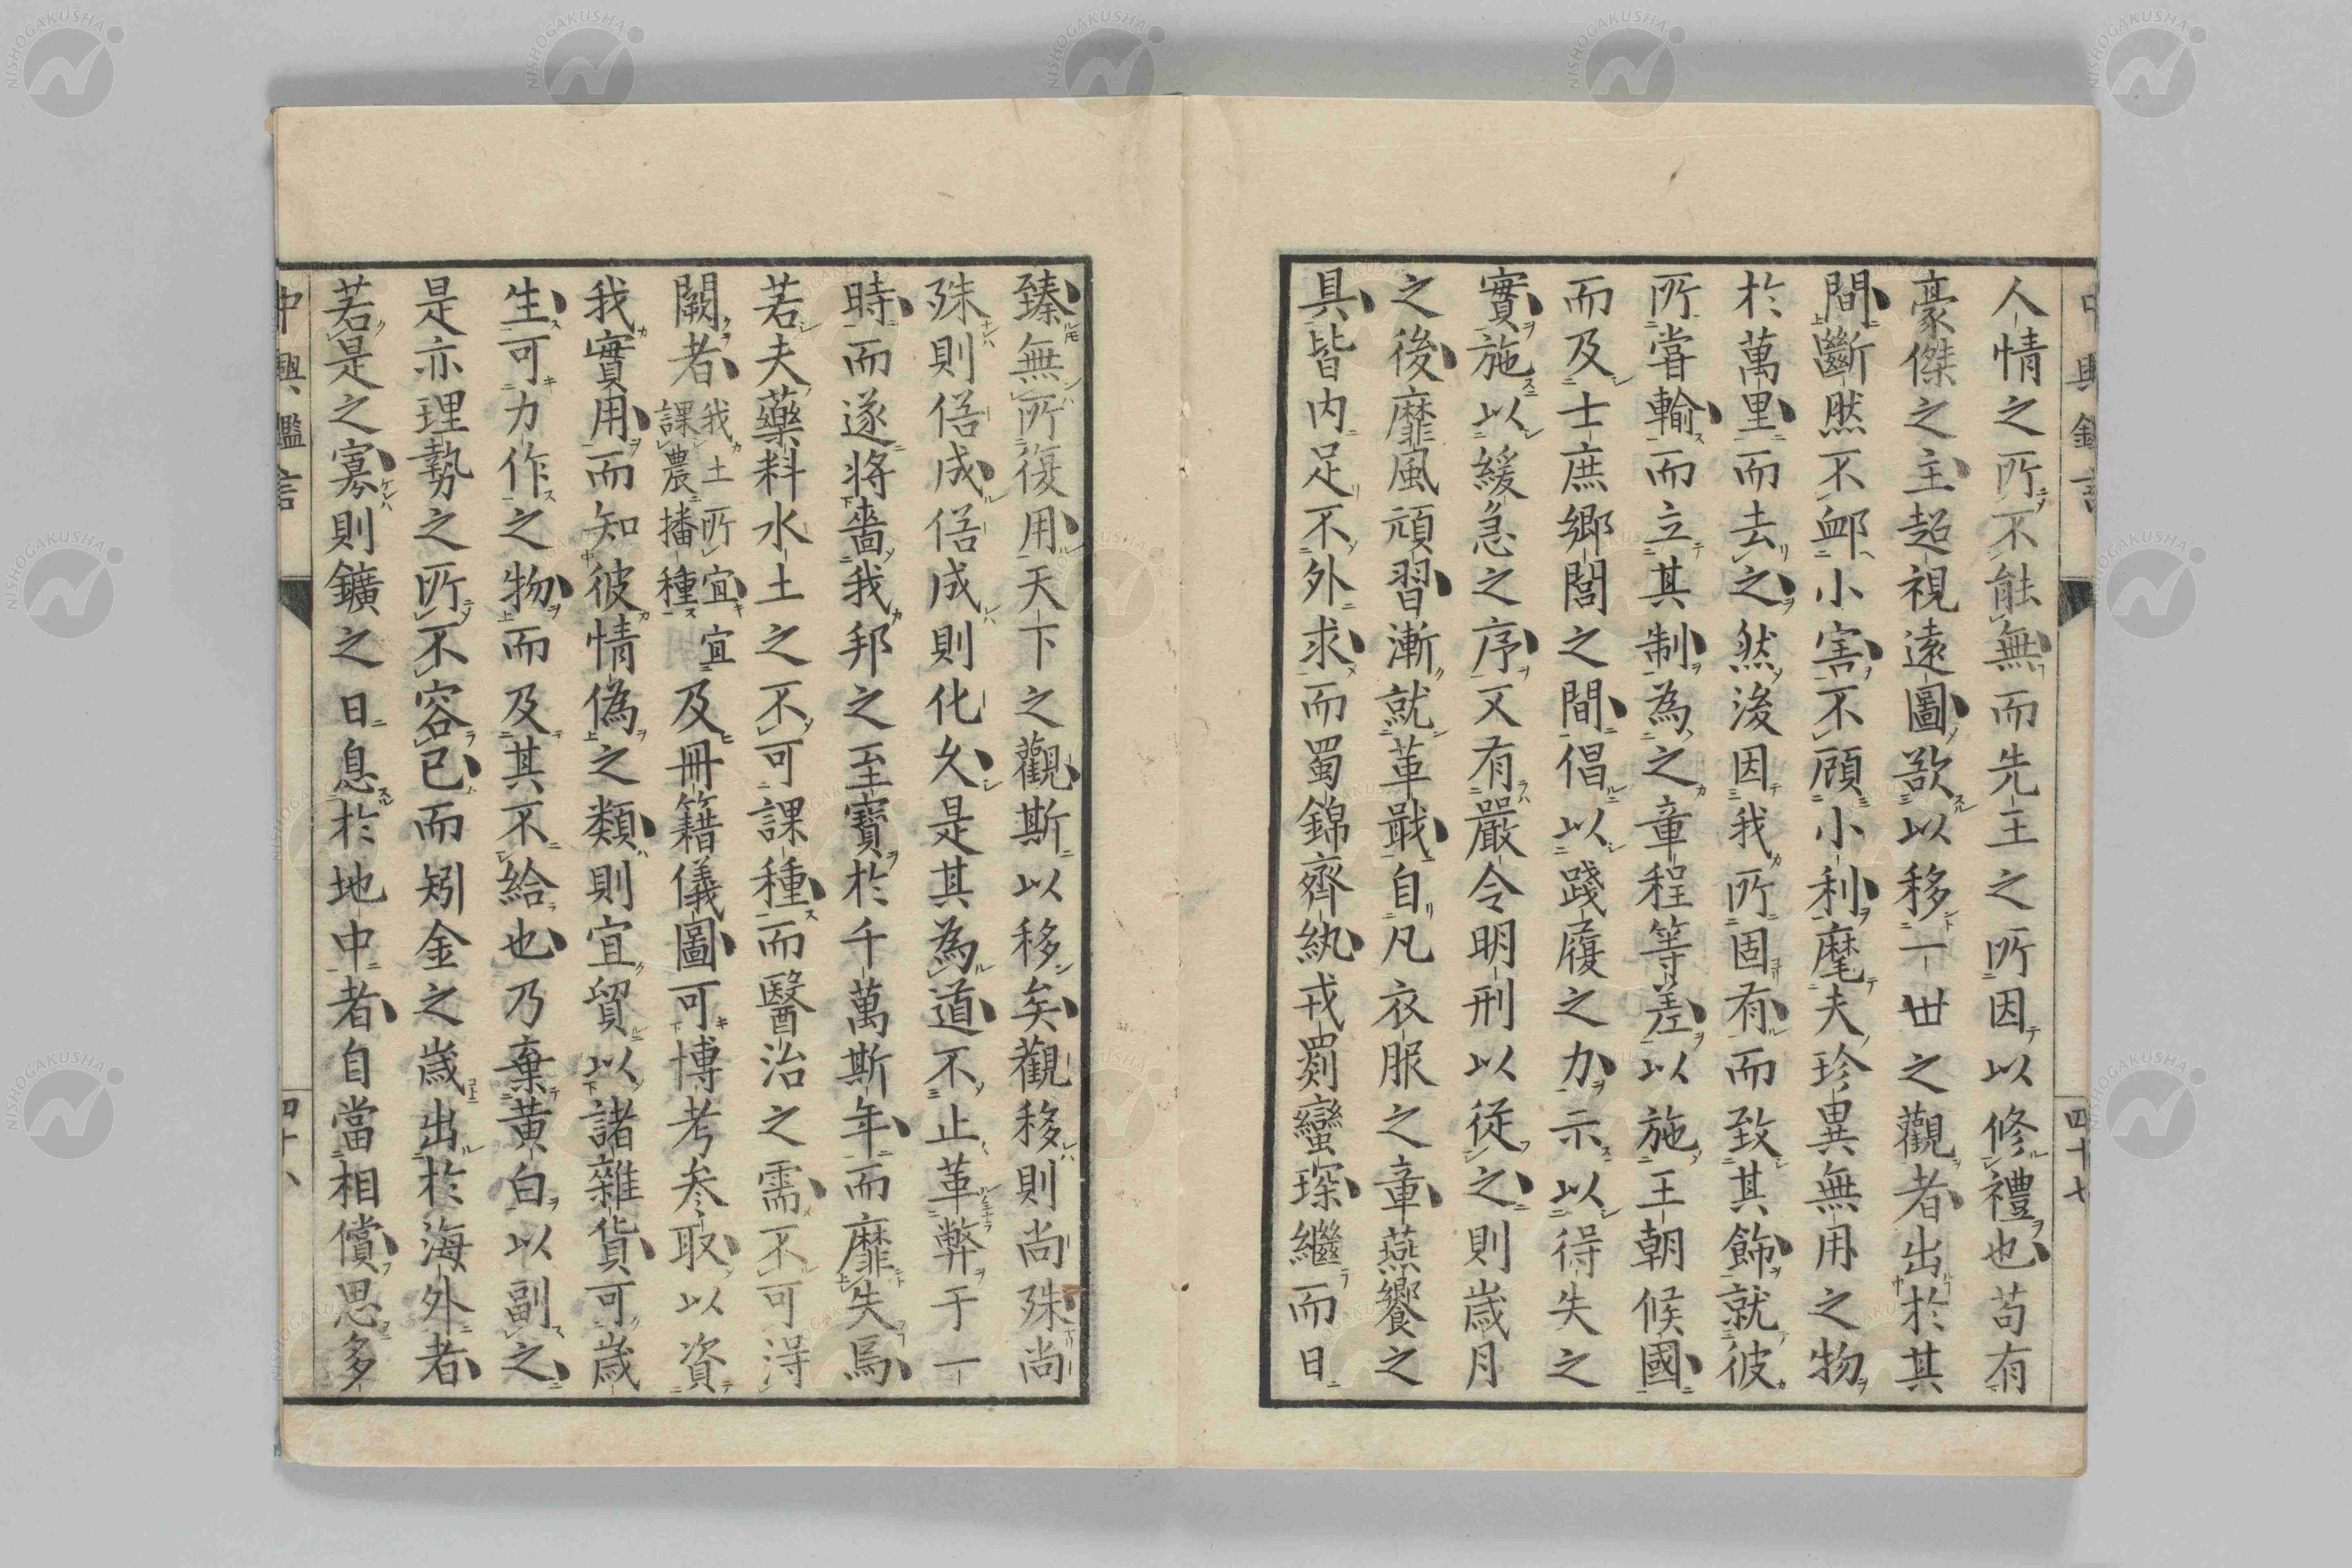 人情之所不能無而先王之所因以修禮也苟有
豪傑之主超視遠圖欲以移一世之觀者出於其
間斷然不卹小害不顧小利麾夫珍異無用之物
於萬里而去之然後因我所固有而致其飾就彼
所嘗輸而立其制為之章程等差以施王朝候國
而及士庶鄉閭之間倡以踐履之力示以得失之
實施以緩急之序又有嚴令明刑以從之則歲月
之後靡風頑習漸就革戢自凡衣服之章燕饗之
具皆內足不外求而蜀錦齊紈戎罽蠻琛繼而日
中興鑑言
四十七
臻無所復用天下之觀斯以移矣觀移則尚殊尚
殊則俗成俗成則化久是其為道不止革弊于一
時而遂將嗇我邦之至寶於千萬斯年而靡失焉
若夫藥料水土之不可課種而醫治之需不可得
闕者我土所宜宜課農播種及冊籍儀圖可博考參取以資
我實用而知彼情偽之類則宜貿以諸雜貨可歲
生可力作之物而及其不給也乃棄黃白以副之
是亦理勢之所不容已而矧金之歲出於海外者
若是之寡則鑛之日息於地中者自當相償思多
中興鑑言
四十八
NISHOGAKUSHA